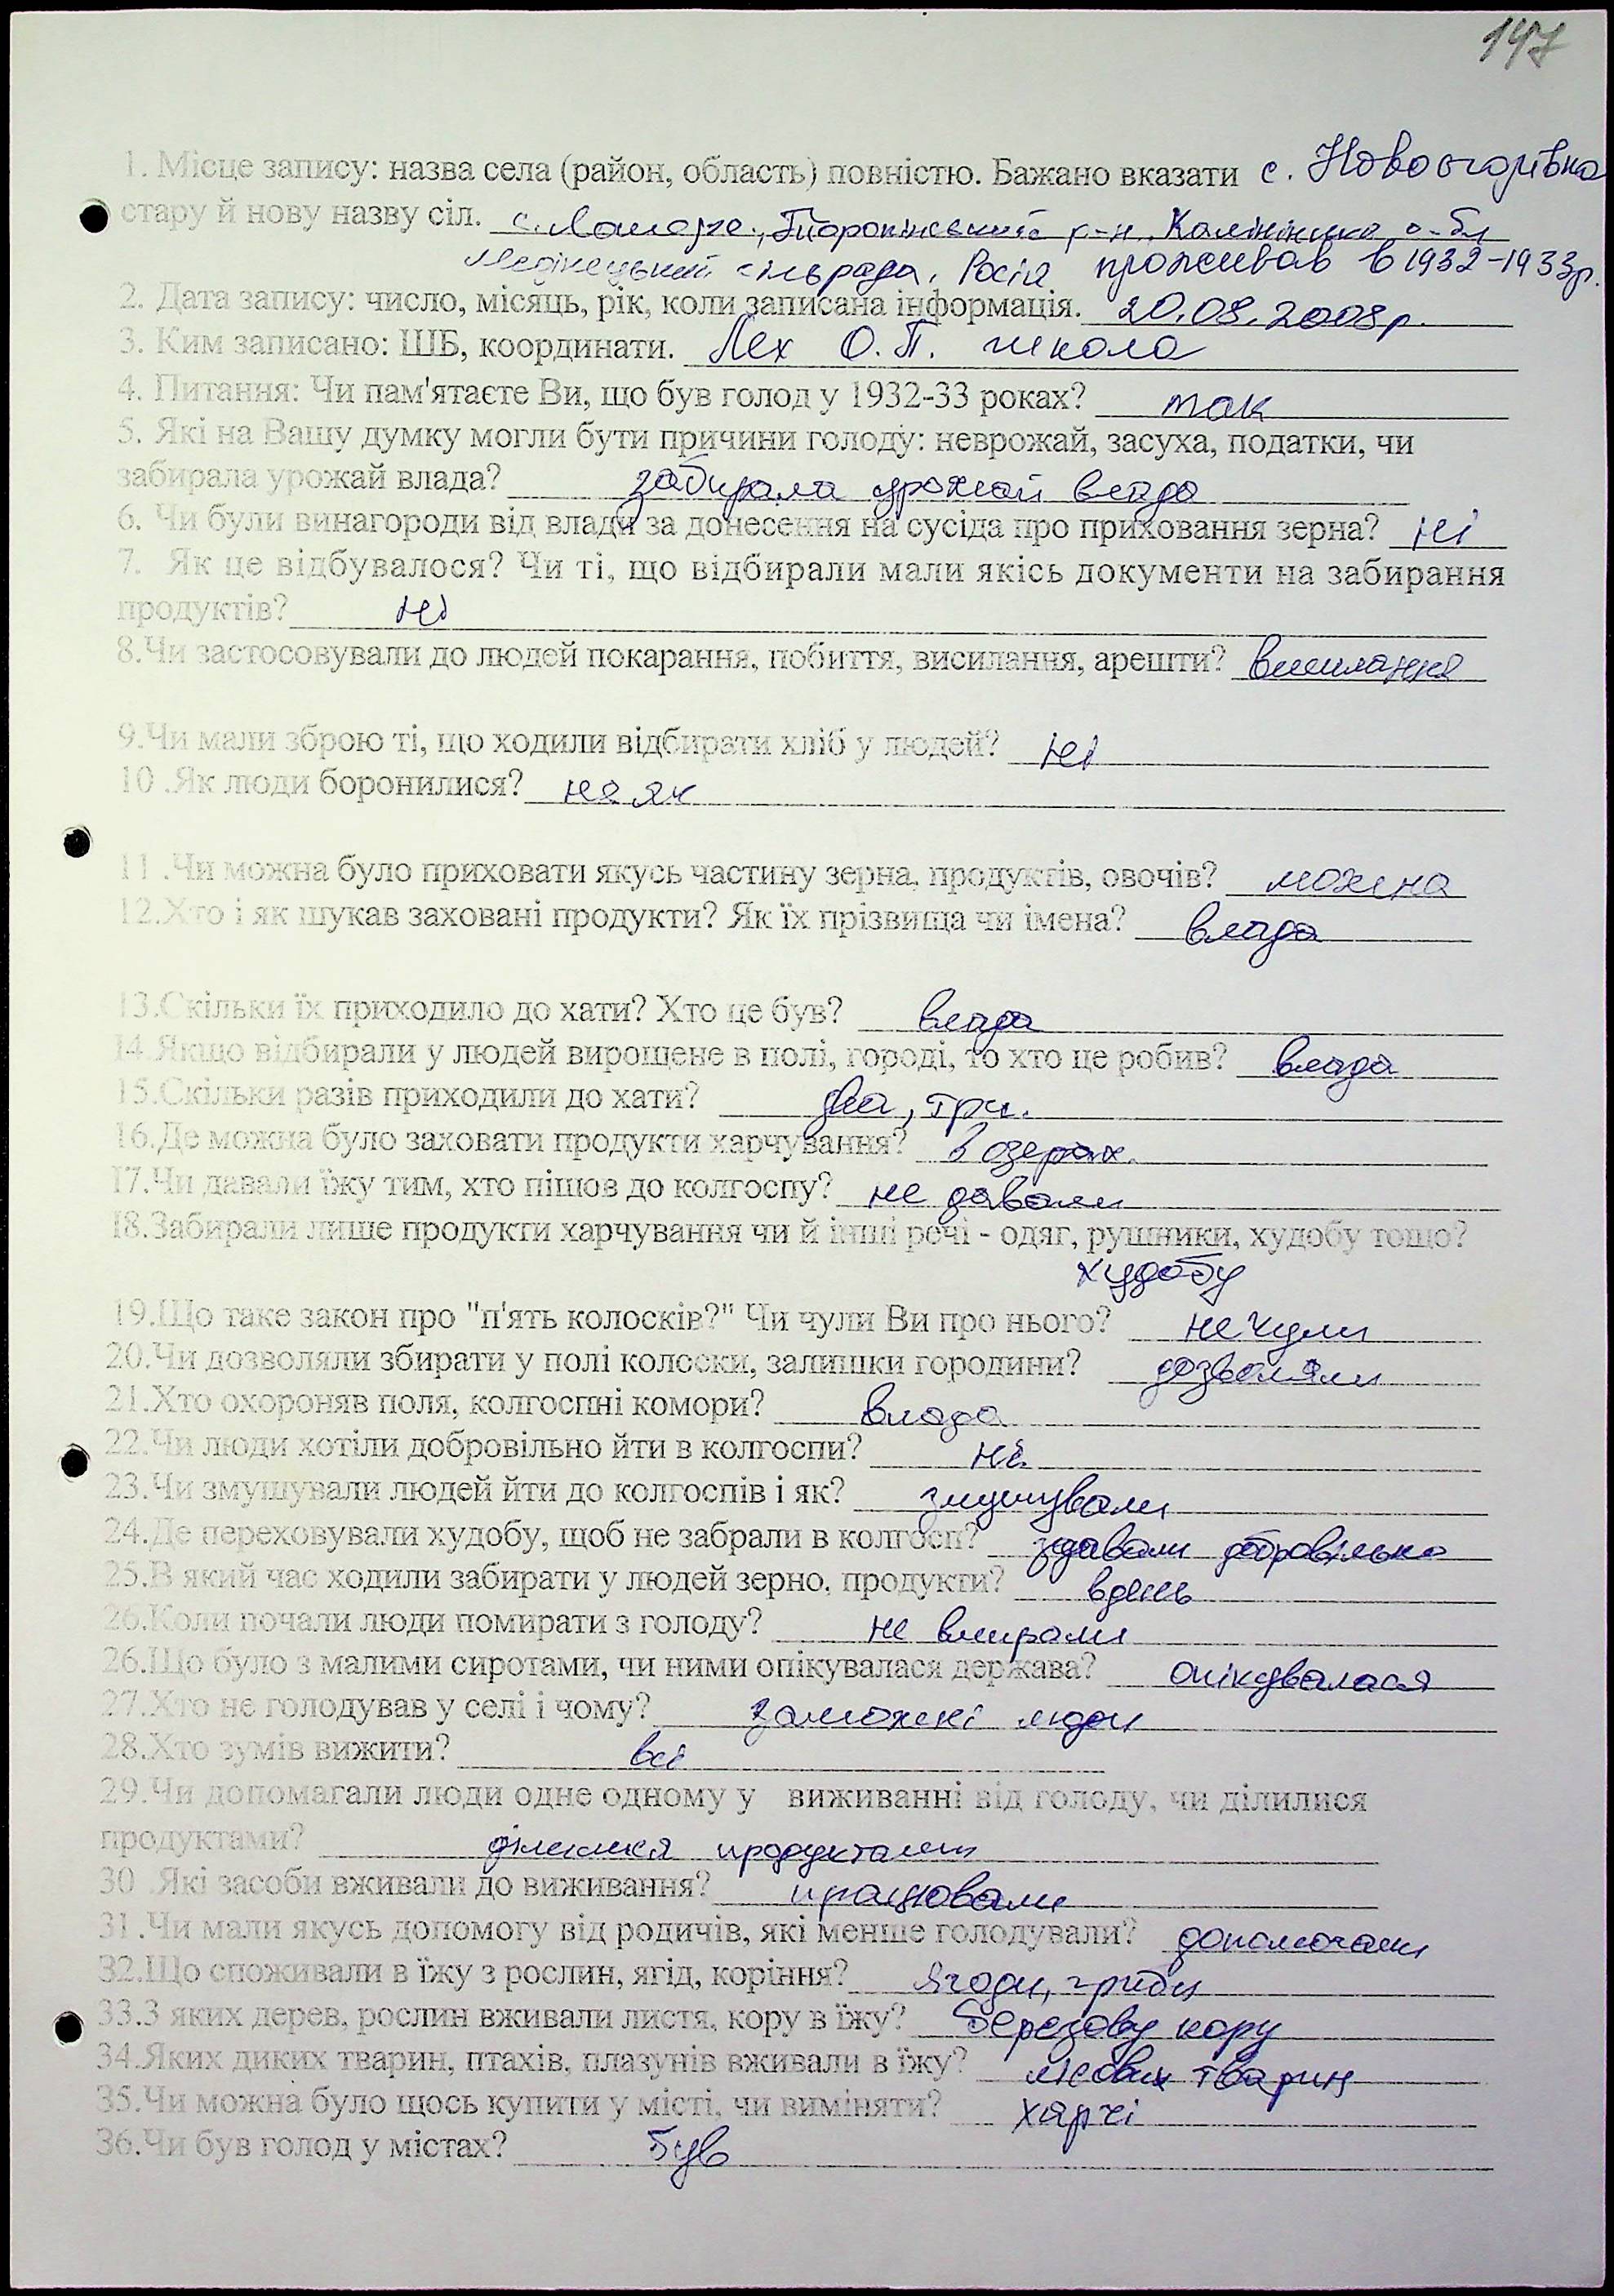 147
1. Місце запису: назва села (район, область) повністю. Бажано вказати с. Новоогорівка
стару й нову назву сіл. с. р-н, Калінінська обл
сільрада, Росія проживав в 1932-1933р.
2. Дата запису: число, місяць, рік, коли записана інформація. 20.08.2008р.
3. Ким записано: ШБ, координати. Лех О.П. школа
4. Питання: Чи пам'ятаєте Ви, що був голод у 1932-33 роках? так
5. Які на Вашу думку могли бути причини голоду: неврожай, засуха, податки, чи
забирала урожай влада? забирала урожай влада
6. Чи були винагороди від влади за донесення на сусіда про приховання зерна? ні
7. Як це відбувалося? Чи ті, що відбирали мали якісь документи на забирання
продуктів? ні
8.Чи застосовували до людей покарання, побиття, висилання, арешти? висилання
9.Чи мали зброю ті, що ходили відбирати хліб у людей? ні
10 .Як люди боронилися? не як
11 .Чи можна було приховати якусь частину зерна, продуктів, овочів? можна
12.Хто і як шукав заховані продукти? Як їх прізвища чи імена? влада
13.Скільки їх приходило до хати? Хто це був? влада
14.Якщо відбирали у людей вирощене в полі, городі, то хто це робив? влада
15.Скільки разів приходили до хати? два, три.
16.Де можна було заховати продукти харчування? в озерах.
17.Чи давали їжу тим, хто пішов до колгоспу? не давали
18.Забирали лише продукти харчування чи й інші речі - одяг, рушники, худобу тощо?
худобу
19.Що таке закон про "п'ять колосків?" Чи чули Ви про нього? не чули
20.Чи дозволяли збирати у полі колоски, залишки городини? дозволяли
21.Хто охороняв поля, колгоспні комори? влада
22.Чи люди хотіли добровільно йти в колгоспи? ні.
23.Чи змушували людей йти до колгоспів і як? змушували
24.Де переховували худобу, щоб не забрали в колгосп? здавали добровільно
25.В який час ходили забирати у людей зерно, продукти? вдень
26.Коли почали люди помирати з голоду? не вмирали
26.Що було з малими сиротами, чи ними опікувалася держава? опікувалася
27.Хто не голодував у селі і чому? заможні люди
28.Хто зумів вижити? всі
29.Чи допомагали люди одне одному у виживанні від голоду, чи ділилися
продуктами? ділилися продуктами
30 .Які засоби вживали до виживання? працювали
31.Чи мали якусь допомогу від родичів, які менше голодували? допомогали
32.Що споживали в їжу з рослин, ягід, коріння? ягоди, гриби
33.З яких дерев, рослин вживали листя, кору в їжу? березову кору
34.Яких диких тварин, птахів, плазунів вживали в їжу? лісових тварин
35.Чи можна було щось купити у місті, чи виміняти? харчі
36.Чи був голод у містах? був